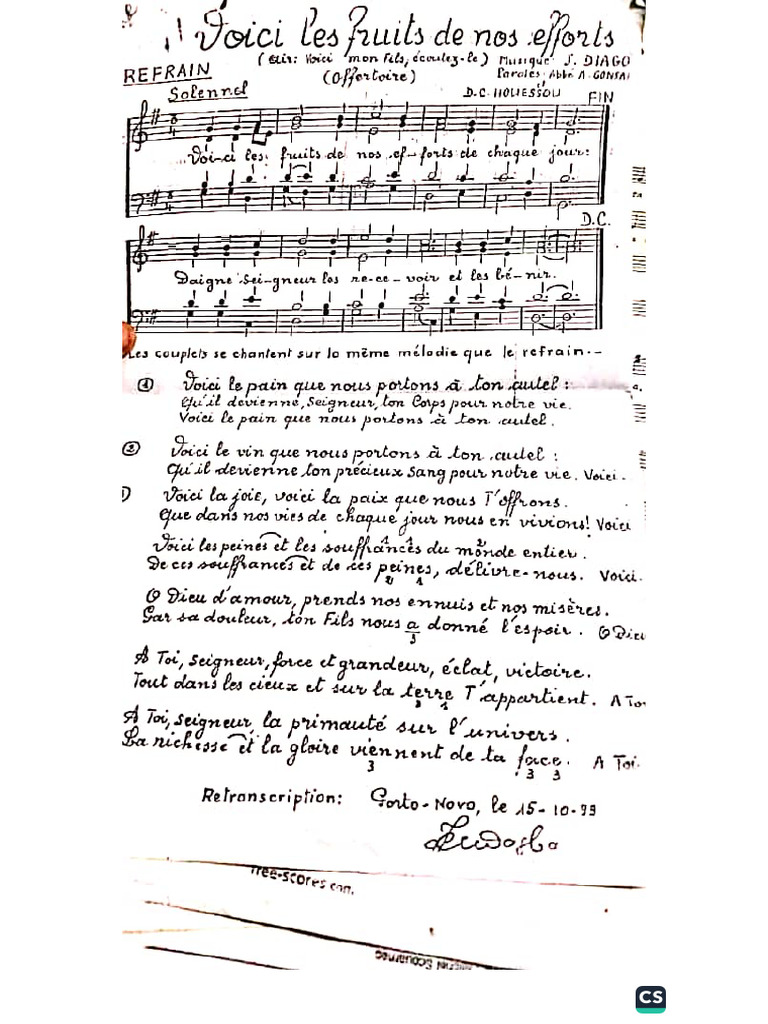 Voici les fruits de nos efforts
(Air: Voici mon Fils, écoutez-le) Musique: S. DIAGO
REFRAIN (Offertoire) Paroles: Abbé A. GONSA
Solennel D.C. HOUESSOU FIN
Voi-ci les fruits de nos ef-forts de chaque jour:
D.C.
Daigne Sei-gneur les re-ce-voir et les bé-nir.
Les couplets se chantent sur la même mélodie que le refrain.-
① Voici le pain que nous portons à ton autel:
Qu'il devienne, Seigneur, ton Corps pour notre vie.
Voici le pain que nous portons à ton autel.
② Voici le vin que nous portons à ton autel:
Qu'il devienne ton précieux Sang pour notre vie. Voici.
Voici la joie, voici la paix que nous T'offrons.
Que dans nos vies de chaque jour nous en vivions! Voici
Voici les peines et les souffrances du monde entier.
De ces souffrances et de ces peines, délivre-nous. Voici.
O Dieu d'amour, prends nos ennuis et nos misères.
Car sa douleur, ton Fils nous a donné l'espoir. O Dieu
3
A Toi, Seigneur, force et grandeur, éclat, victoire.
Tout dans les cieux et sur la terre T'appartient. A Toi
A Toi, Seigneur la primauté sur l'univers.
La richesse et la gloire viennent de ta face. A Toi.
3 3 3
Retranscription: Porto-Novo, le 15-10-99
free-scores.com
CS